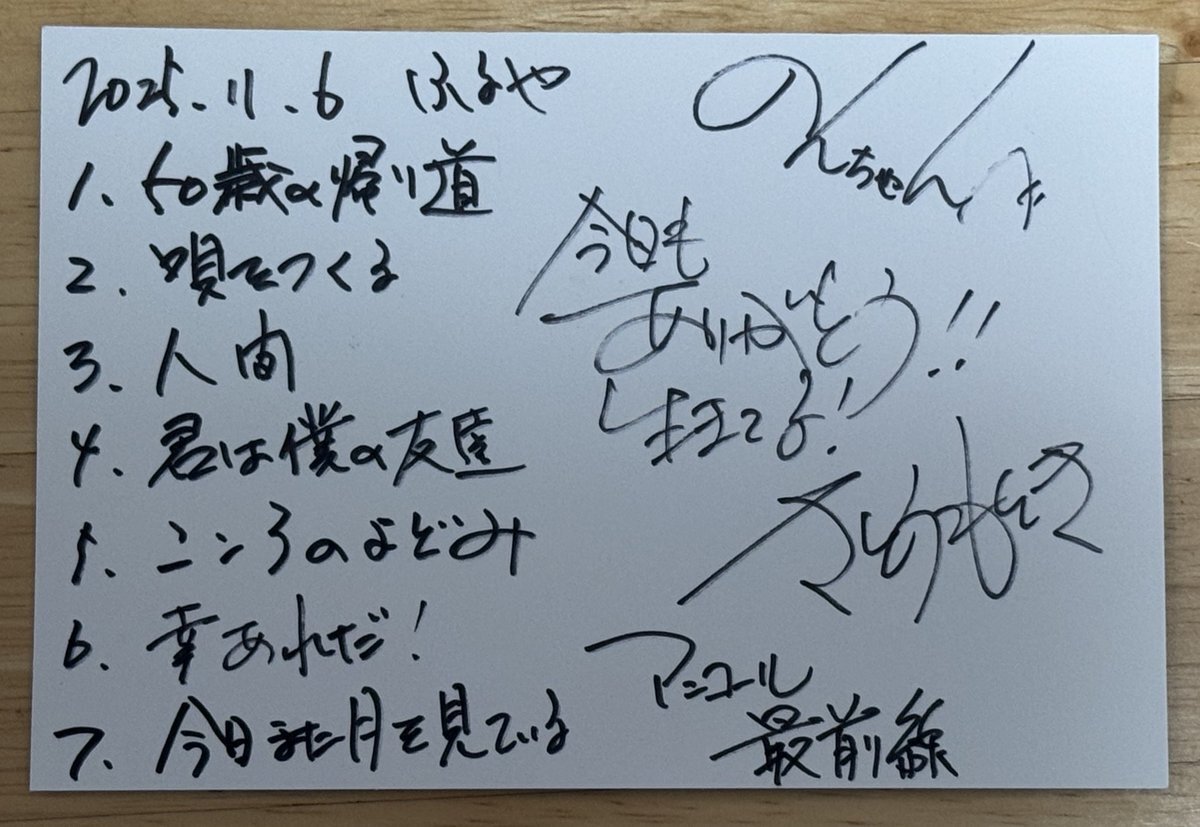 2025.11.6 ふるや
1. 50歳の帰り道
2. 唄をつくる
3. 人間
4. 君は僕の友達
5. こころのよどみ
6. 幸あれだ!
7. 今日また月を見ている
のんちゃん
今日も
ありがとう!!
生きてる!
アンコール
最前線